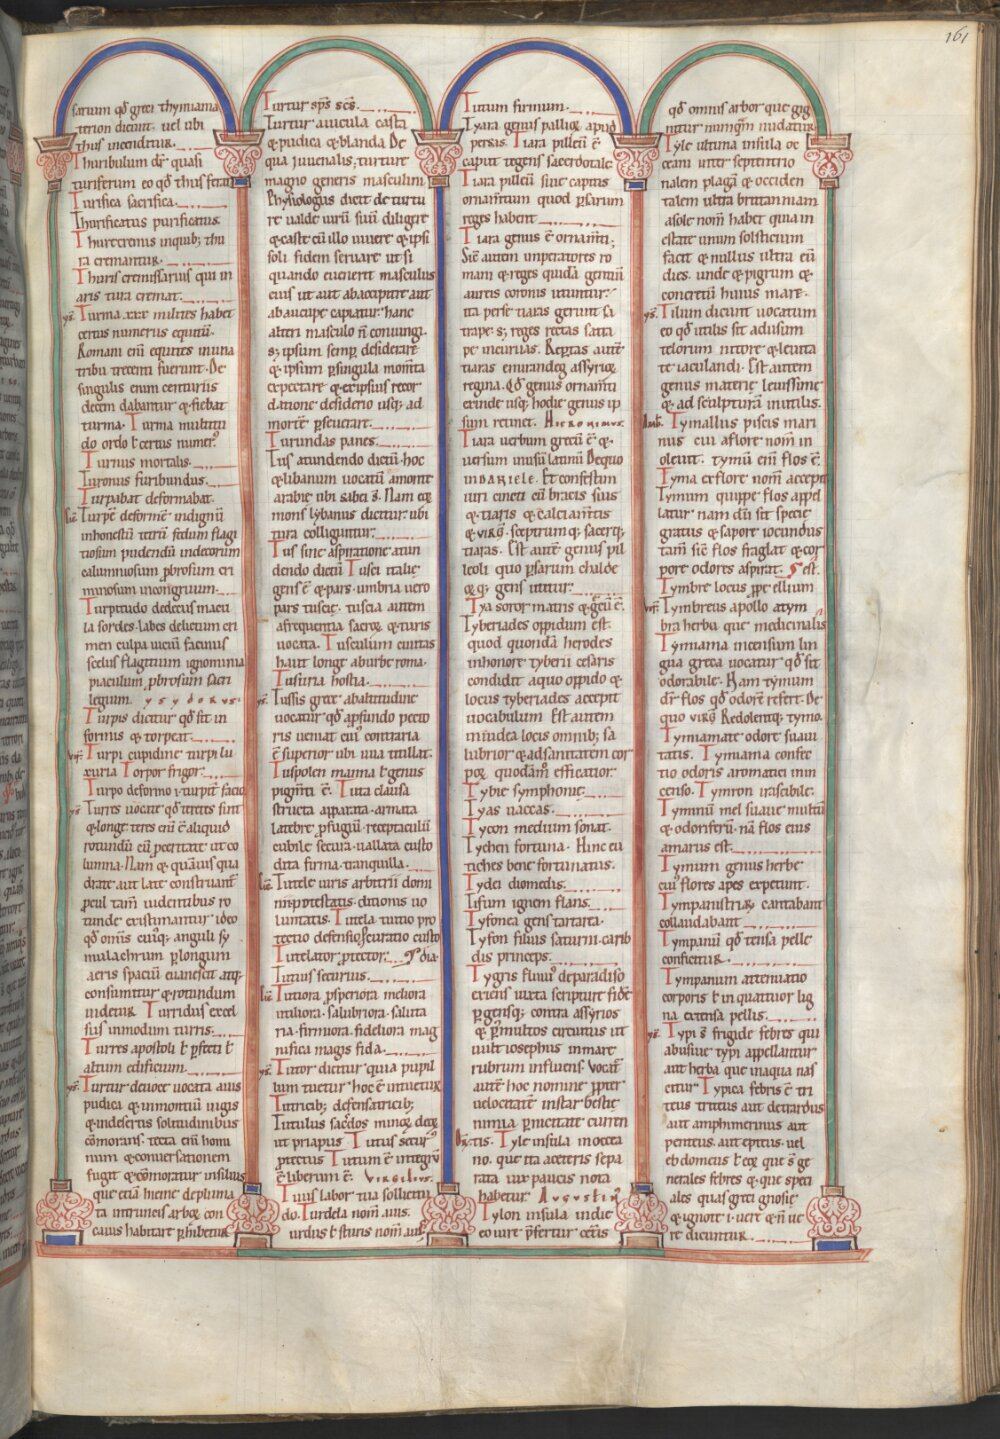 161
sarium qđ greci thymiama
terion dicunt. vel ubi
thus incenditur.
Thuribulum dr̄ quasi
turiferum eo qđ thus ferat
Turifica sacrifica.
Thurificatus purificatus.
Thurecremis inquib; thu
ra cremantur.
Thuris cremissarius qui in
aris tura cremat.
ys. Turma .xxx. milites habet
certus numerus equitū.
Romani enī equites in una
tribu trecenti fuerunt. De
singulis enim centuriis
decem dabantur & fiebat
turma. Turma multitu
do ordo ł certus numer᷒.
Turnus mortalis.
Turonus furibundus.
Turpabat deformabat.
Turpē deformē indignū
inhonestū tetrū fedum flagi
tiosum pudendū indecorum
calumniosum ꝓbrosum cri
minosum incongruum.
Turpitudo dedecus macu
la sordes. labes delictum cri
men culpa uiciū facinus
scelus flagitium ignominia
piaculum ꝓbrosum sacri
legium. ysydorus.
Turpis dicitur qđ sit in
formis & torpeat.
Turpi cupidine turpi lu
xuria Torpor frigor.
Turpo deformo .i. turpē facio
ys. Turres uocate qđ teretes sint
& longe. teres enī ē aliquid
rotundū cū ꝓceritate ut co
lumna. Nam & quāuis qua
drate aut late construant̄
ꝓcul tam̄ uidentibus ro
tunde existimantur ideo
qđ om̄is cui᷒q; anguli sy
mulachrum ꝑ longum
aeris spacium euanescit atq;
consumitur & rotundum
uidetur. Turridus excel
sus inmodum turris.
Turres apostoli ł ꝑfecti ł
altum edificium.
ys. Turtur deuoce uocata auis
pudica & inmontiū iugis
& indesertis solitudinibus
cōmorans. tecta enī homi
num & conuersationem
fugit & cōmoratur insiluis
que etiā hieme depluma
ta intrunceis arboꝝ con
cauis habitare ꝑhibetur.
Turtur sps̄ scs̄.
Turtur auicula casta
& pudica & blanda. De
qua iuuenalis. turture
magno generis masculini
Physiologus dicit de turtu
re ualde uirū suū diligere
& caste cū illo uiuere & ipsi
soli fidem seruare ut si
quando euenerit masculus
eius ut aut abaccipitre aut
abaucupe capiatur. hanc
alteri masculo n̄ coniungi.
s; ipsum semꝑ desiderare
& ipsum ꝑsingula momt̄a
expectare & exipsius recor
datione desiderio usq; ad
mortē ꝑseuerare.
Turundas panes.
Tus atundendo dictū. hoc
& libanum uocatū amonte
arabie ubi sabei s̄. Nam eoꝝ
mons lybanus dicitur ubi
tura colliguntur.
Tus sine aspiratione atun
dendo dictū Tusci italię
gens ē & pars. umbria uero
pars tuscię. tuscia autem
afrequentia sacroꝝ & turis
uocata. Tusculum ciuitas
haut longe aburbe roma.
Tusuria hostia.
ys. Tussis grece abaltitudine
uocatur qđ aꝓfundo pecto
ris ueniat cui᷒ contraria
ē superior ubi uua titillat.
Tuspolen manna ł genus
pigm̄ti ē. Tuta clausa
structa apparata. armata
latebre ꝓfugiū. receptaculū
cubile secura. uallata custo
dita firma. tranquilla.
Tutele iuris arbitrii domi
nii potestatis. ditionis uo
luntatis. Tutela tuitio pro
tectio defensio. curatio custo
Tutelator ꝓtector. dia
Tutius securius.
Tutiora ꝓsperiora meliora
utiliora. salubriora. saluta
ria. firmiora. fideliora mag
nifica magis fida.
ys. Tutor dicitur quia pupil
lum tuetur hoc ē intuetur
Tutricib; defensatricib;
Tutulus sac̄dos minoꝝ deoꝝ
ut priapus Tutus secur᷒
ꝓtectus Tutum ē integrū
ē liberum ē. Virgilius.
Tuus labor tua sollicitu
do. Turdela nom̄ auis.
urdus ł sturis nom̄ auis
Tutum firmum.
Tyara genus pallioꝝ apud
persis. Tiara pilleū ē
caput tegens sacerdotale
Tiara pilleū siue capitis
ornam̄tum quod ꝑsarum
reges habent
Tiara genus ē ornam̄ti.
Sic̄ autem imperatores ro
mani & reges quidā gentiū
aureis coronis utuntur.
ita perse tiaras gerunt sa
trape. s; reges rectas satra
pe incuruas. Reꝑtas autē
tiaras emirandeꝝ assyrioꝝ
regina. Qđ genus ornam̄ti
exinde usq; hodie genus ip
sum retinet. Hieronimus.
Tiara uerbum grecū ē & .
uersum inusū latinū De quo
indaniele. Et confestim
uiri cincti cū bracis suis
& tiaris & calciam̄tis
& virḡ. sceptrum q; sacerq;
tiaras. Est autē genus pil
leoli quo ꝑsarum chalde
oꝝ q; gens utitur.
Tya soror matris & gręcū ē.
Tyberiades oppidum est
quod quondā herodes
inhonore tyberii cesaris
condidit aquo oppido &
locus tyberiades accepit
uocabulum Est autem
iniudea locis omnib; sa
lubrior & adsanitatem cor
poꝝ quodam̄ efficatior.
Tybie symphonię.
Tyas uaccas.
Tycon medium sonat.
Tychen fortuna. Hinc eu
tiches bene fortunatus.
Tydei diomedis.
Tisum ignem flans.
Tyfonea gens tartarea.
Tyfon filius saturni. carib
dis princeps.
Tygris fluui᷒ deparadiso
exiens iuxta scripture fidē
ꝑgensq; contra assyrios
& ꝑ multos circuitus ut
uult iosephus inmare
rubrum influens. Vocat̄
autē hoc nomine ꝓpter
uelocitatē instar bestię
nimia ꝑnicitate curren
tis. Tyle insula in ocea
no. que ita aceteris sepa
rata uix paucis nota
habetur Augustin᷒
Tylon insula indie
eo uire ꝑfertur cet̄is
qđ omnis arbor que gig
nitur numqm̄ nudatur.
Tyle ultima insula oc
ceani inter septentrio
nalem plagā & occiden
talem ultra brittanniam
asole nom̄ habet quia in
estate unum solsticium
facit & nullus ultra eū
dies. unde & pigrum &
concretū huius mare.
ys. Tilum dicunt uocatum
eo qđ utilis sit adusum
telorum nitore & leuita
te iaculandi. Est autem
genus materię leuissimę
& ad sculpturā inutilis.
Amb. Tymallus piscis mari
nus cui aflore nom̄ in
oleuit. tymū enī flos ē.
Tyma exflore nom̄ accepit
Tymum quippe flos appel
latur nam cū sit specie
gratus & sapore iocundus
tam̄ sic̄ flos fraglat & cor
pore odores aspirat. est.
Tymbre locus ꝓpe ellium
Tymbreus apollo atym
bra herba. que medicinalis
Tymiama incensum lin
gua greca uocatur qđ sit
odorabile. Nam tymum
dr̄ flos qđ odorē refert. De
quo virḡ Redolentq; tymo.
Tymiamate odore suaui
tatis. Tymiama confec
tio odoris aromatici inin
censo. Tymron irascibile.
Tymnū mel suaue multū
& odoriferū. nā flos eius
amarus est.
Tymum genus herbe
cui᷒ flores apes expetunt.
Tympanistriꝝ cantabant
collaudabant
Tympanū qđ tensa pelle
conficitur.
Tympanum attenuatio
corporis ł in quattuor lig
na extensa pellis.
ys. Typi s̄ frigide febres qui
abusiue typi appellantur
aut herba que inaqua nas
citur Typica febris ē tri
teus triteus aut detiardus
aut amphimerinus aut
penteus. aut epiteus. uel
ebdomeus ł eoꝝ que s̄ ge
nerales febres & que speci
ales quas greci gnosię
& ignote .i. uere & n̄ ue
re dicuntur.